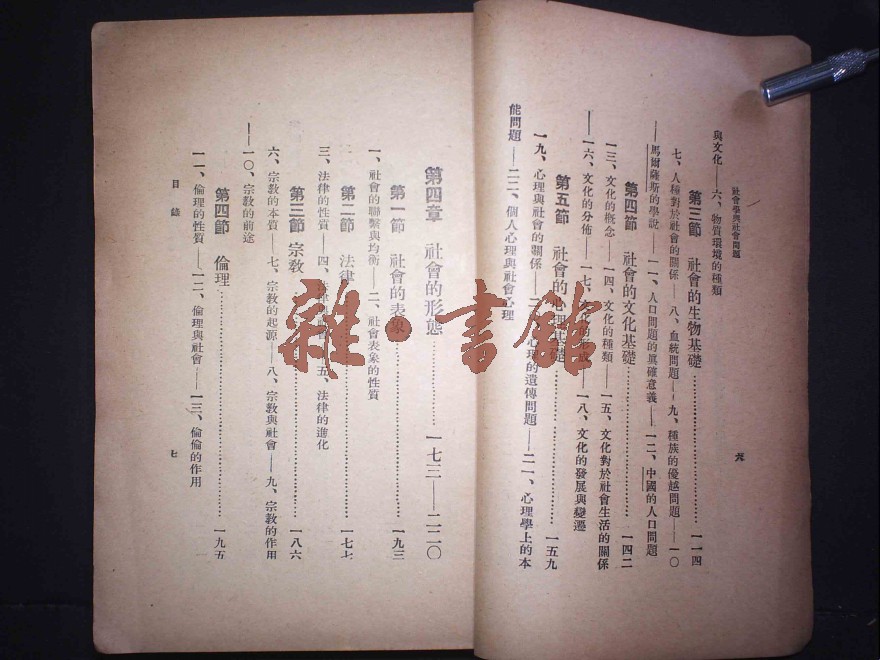 社會學與社會問題
與文化——六、物質環境的種類
第三節　社會的生物基礎…………一一四
七、人種對於社會的關係——八、血統問題——九、種族的優越問題——一〇
——馬爾薩斯的學說——一一、人口問題的眞確意義——一二、中國的人口問題
第四節　社會的文化基礎…………一四二
一三、文化的概念——一四、文化的種類——一五、文化對於社會生活的關係
——一六、文化的分佈——一七、文化的形成——一八、文化的發展與變遷
第五節　社會的心理基礎…………一五九
一九、心理與社會的關係——二〇、心理的遺傳問題——二一、心理學上的本
能問題——二二、個人心理與社會心理
六
第四章　社會的形態…………一七三——二二〇
第一節　社會的表象…………一九三
一、社會的聯繫與均衡——二、社會表象的性質
第二節　法律…………一七七
三、法律的性質——四、法律——五、法律的進化
第三節　宗教…………一八六
六、宗教的本質——七、宗教的起源——八、宗教與社會——九、宗教的作用
——一〇、宗教的前途
第四節　倫理…………一九五
一一、倫理的性質——一二、倫理與社會——一三、倫倫的作用
目錄
七
雜·書館